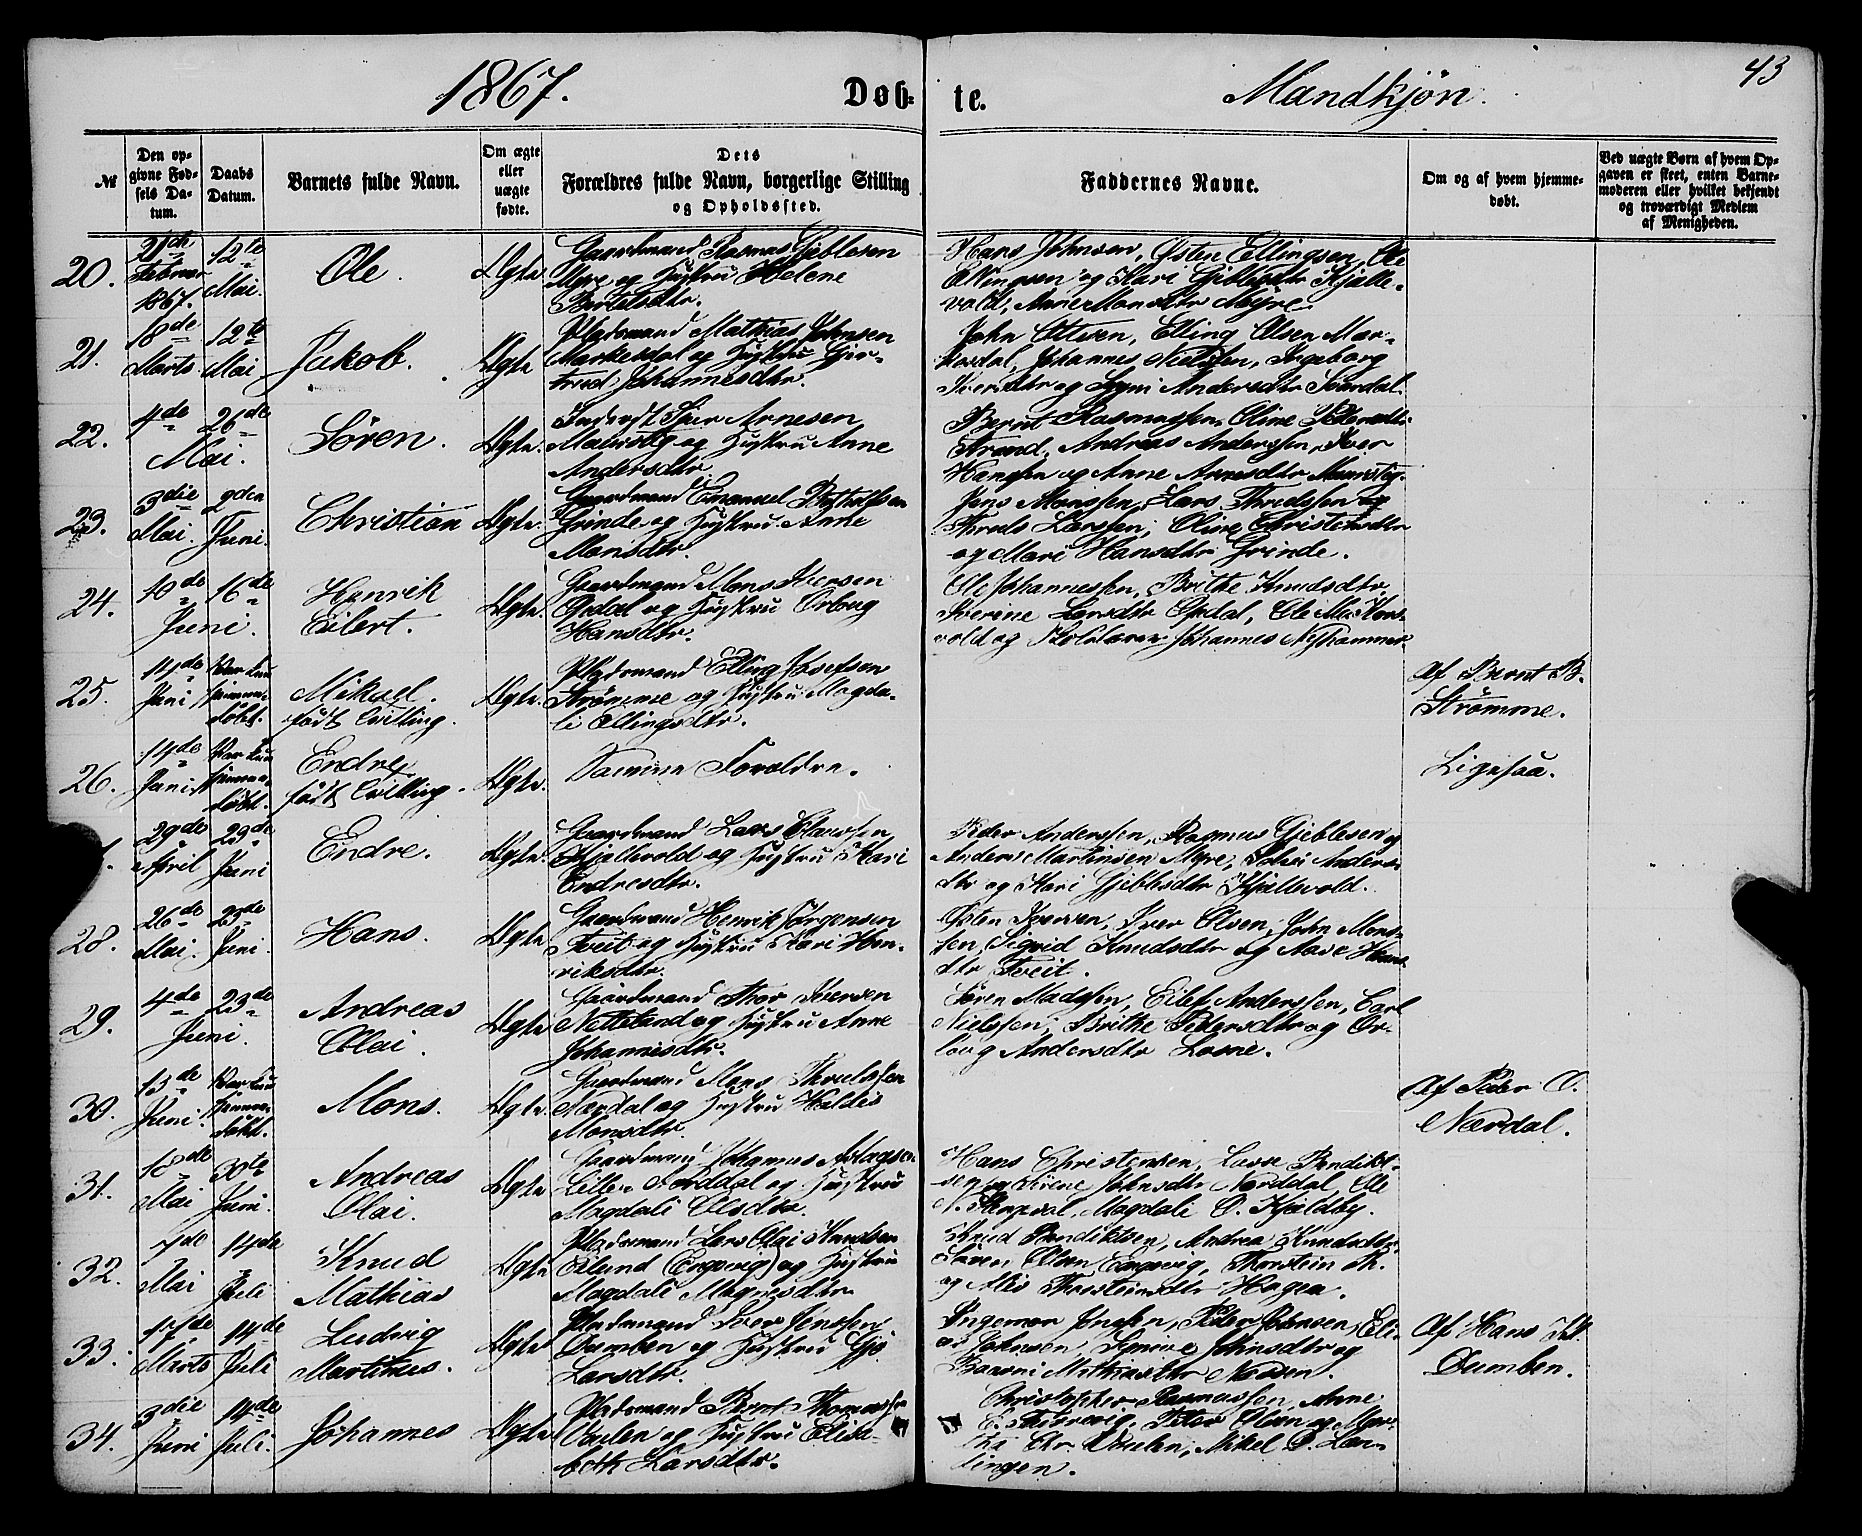 1867.
Døb-
te.
Mandkjøn.
43
№
Den op-
givne Fød-
sels Da-
tum.
Daabs
Datum.
Barnets fulde Navn.
Om ægte
eller
uægte
fødte.
Dets
Forældres fulde Navn, borgerlige Stilling
og Opholdssted.
Faddernes Navne.
Om og af hvem hjemme-
døbt.
Ved uægte Børn af hvem Op-
gaven er skeet, enten Barne-
moderen eller hvilket bekjendt
og troværdigt Medlem
af Menigheden.
20.
21de
Februar
1867.
12te
Mai.
Ole.
Ægte
Gaardmand Rasmus Gjeblesen
Myre og Hustru Helene
Bertelsdtr.
Hans Johnsen, Østen Ellingsen, Ole
Ellingsen og Kari Gjeblesdtr Kjelle-
vold, Anne Monsdtr Myre.
21.
18de
Marts
12te
Mai
Jakob.
Ægte
Pladsmand Mathias Johnsen
Markesdal og Hustru Gjer-
trud Johannesdtr.
John Ottesen, Elling Olsen Mar-
kesdal, Johannes Nielsen, Ingeborg
Iversdtr og Andersdtr
22.
4de
26de
Mai.
Søren.
Ægte.
Iver Arnesen
og Hustru Anne
Andersdtr.
Bernt Rasmussen, Oline
Strand, Andreas Anderssen, Iver
Hanssen og Anne Arnesdtr
23.
3die
Mai.
2den
Juni.
Christian
Ægte.
Gaardmand Emanuel
Grinde og Hustru Anne
Monsdtr.
Jens Monssen, Lars Thredssen og
Larssen, Oline Christensdtr
og Mari Hansdtr Grinde.
24.
10de
16de
Juni.
Henrik
Eilert.
Ægte.
Gaardmand Mons Iversen
Opdal og Hustru Orboug
Hansdtr.
Ole Johannessen, Brithe Knudsdtr,
Iverine Larsdtr Opdal, Ole M.
vold og Skolelærer Johannes Nyhammer
25.
14de
Juni
Var kun
hjemme-
døbt.
Mikael.
født Tvilling.
Ægte.
Pladsmand Elling Josefsen
Strømme og Hustru Magda-
li Ellingsdtr.
Af Bernt B.
Strømme.
26.
14de
Juni
Var kun
hjemme-
døbt.
Endre,
født Tvilling.
Ægte.
Samme Forældre.
Ligesaa.
29de
April
23de
Juni
Endre.
Ægte.
Gaardmand Lars Clausen
Kjellevold og Hustru Kari
Endresdtr.
Peder Anderssen, Rasmus Gjeblesen og
Anders Martinsen Myre, Anders-
dtr og Kari Gjeblesdtr Kjellevold.
28.
26de
Mai.
23de
Juni.
Hans.
Ægte
Gaardmand Henrik Jørgensen
Tveit og Hustru Kari Hen-
riksdtr.
Østen Iversen, Iver Olsen, John Mons-
sen, Sigrid Knudsdtr og Aase Hans-
dtr Tveit.
29.
4de
23de
Juni.
Andreas
Olai.
Ægte
Gaardmand Thor Iversen
Netteland og Hustru Anne
Johannesdtr.
Søren Madssen, Eilef Anderssen, Carl
Nielssen, Brithe Pedersdtr og Or-
loug Andersdtr Losne.
30.
13de
Juni.
Var kun
hjemme-
døbt.
Mons.
Ægte.
Gaardmand Mons
Nærdal og Hustru
Monsdtr.
Af Peder O.
Nærdal.
31.
18de
Mai
30te
Juni.
Andreas
Olai.
Ægte
Gaardmand Johannes
Lille Norddal og Hustru
Magdali Olsdtr.
Hans Christensen, Lasse Bendikt-
sen og Johnsdtr Norddal, Ole
Magdali O. Kjeldby.
32.
7de
Mai
14de
Juli
Knud
Mathias
Ægte
Pladsmand Lars Olai Knudsen
Eiland (Engevig) og Hustru
Magdali Magnesdtr.
Knud Bendiktsen, Andrea Knudsdtr,
Søren Olsen Engevig, Thorstein Th.
og Thorsteinsdtr Hagen.
33.
17de
Marts
14de
Juli
Ludvig
Martinus.
Ægte
Pladsmand Iver Jenssen
Dumben og Hustru
Larsdtr.
Ingemor Peder Johnsen, Eli-
as Johnsen, Synive Johnsdtr og
Mathiasdtr
Af Hans
Dumben.
34.
3die
Juni
14de
Juli.
Johannes
Ægte
Pladsmand Bernt Thomassen
og Hustru Elisa-
beth Larsdtr.
Christopher Rasmussen, Anne
Peter Olsen og Mar-
tha Chr. Mikel